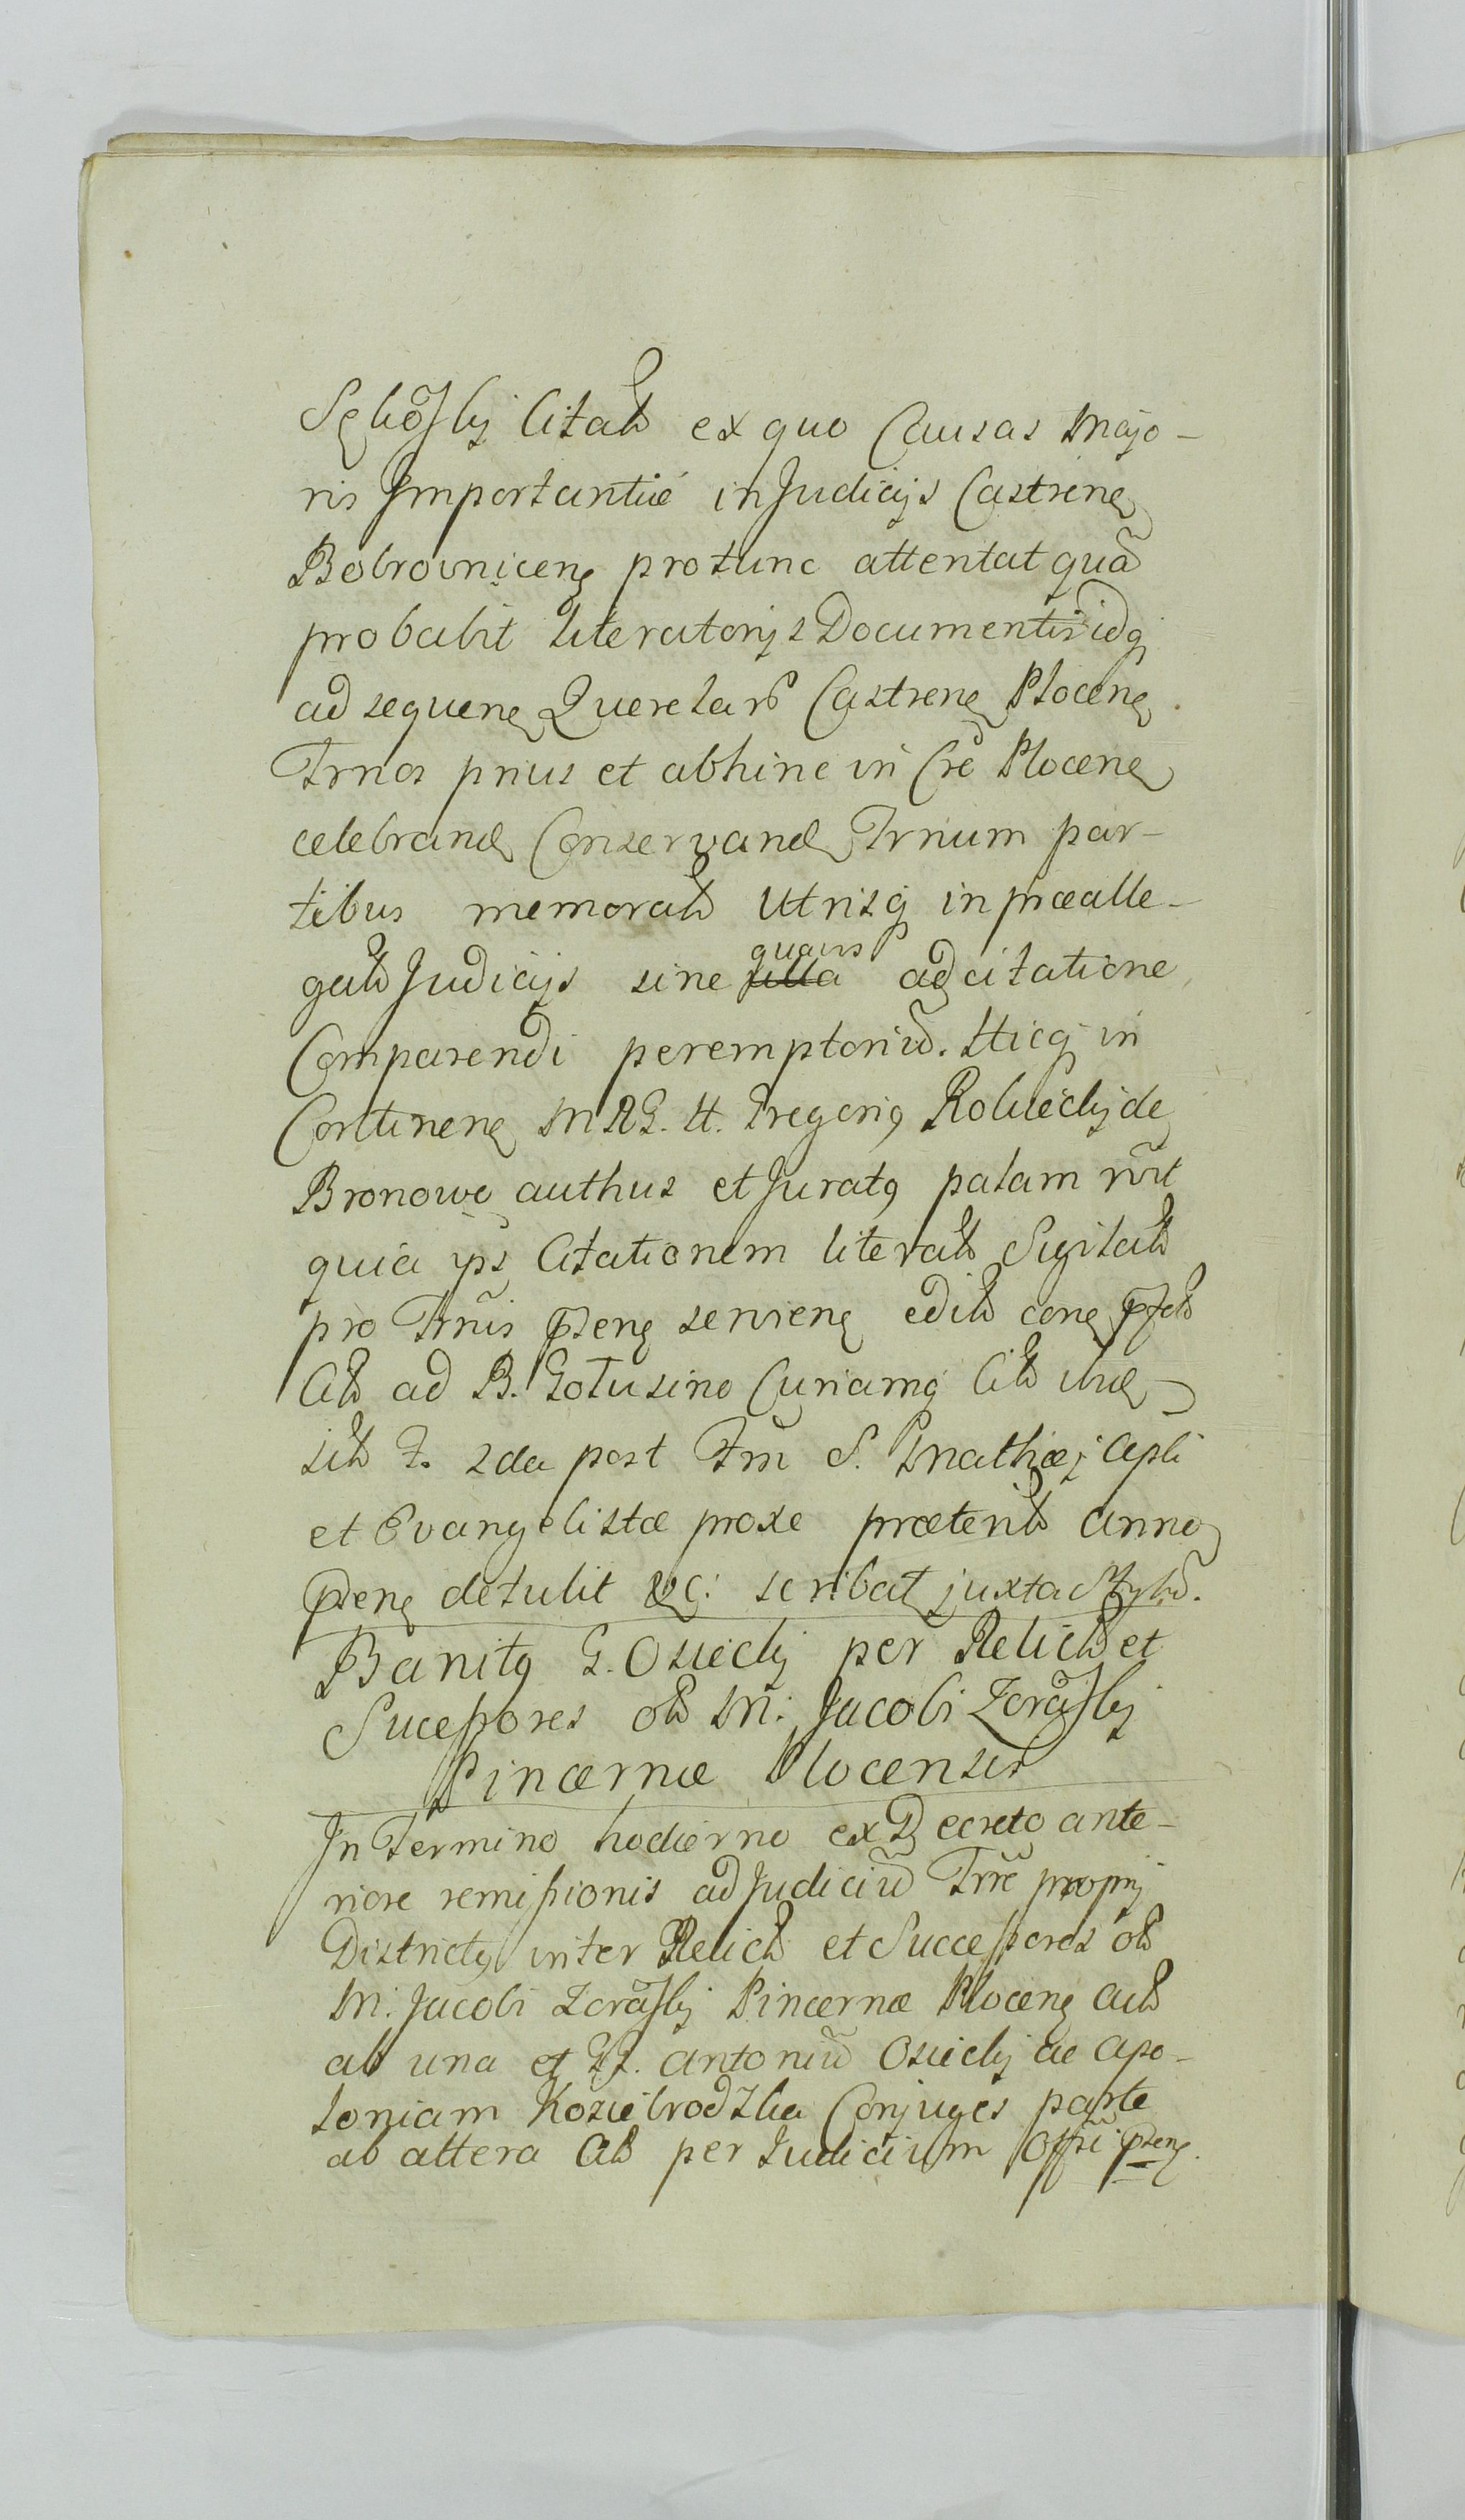 Citat ex quo Causas Majo-
ris Importantiæ in Judicijs Castrens
Bobrovnicens protunc attentat quã
probabit literatorijs Documentis idq
ad sequens Querelars Castrens Plocens
Trnos prius et abhinc in Crê Plocens
celebrand Conservand Trnum par-
tibus memorat utrisq in præalle-
gat Judicijs sine ulla quavis adcitatione
Comparendi peremptoriũ. Hicq in
Continens M RG. H. Gregorig de
Bronowo authus et Juratg palam rãt
quia ips Citationem literat Sigilat
pro Trnis pns serviens edit cons pft
Cit ad B. Gołusino Curiamq Cit ibid
sit F. 2da post Fm S. Mathæj Apli
et Evangelistæ proxe præterit anno
pns detulit &c: scribat juxta Stylũ.
Banitg G. Osieckj per Relict et
Sucessores ol M: Jacobi Zorãskj
Pincernæ Plocensis
In Termino hodierno ex Decreto ante-
riore remissionis ad Judiciũ Trrê proprij
Districtg inter Relict et Successores ol
M: Jacobi Zorãskj Pincernæ Plocens Act
ab una et GG. Antoniũ Osieckj ac Apo-
loniam Koziebrodzka Conjuges parte
ab altera Cit per Judicium Offii pns